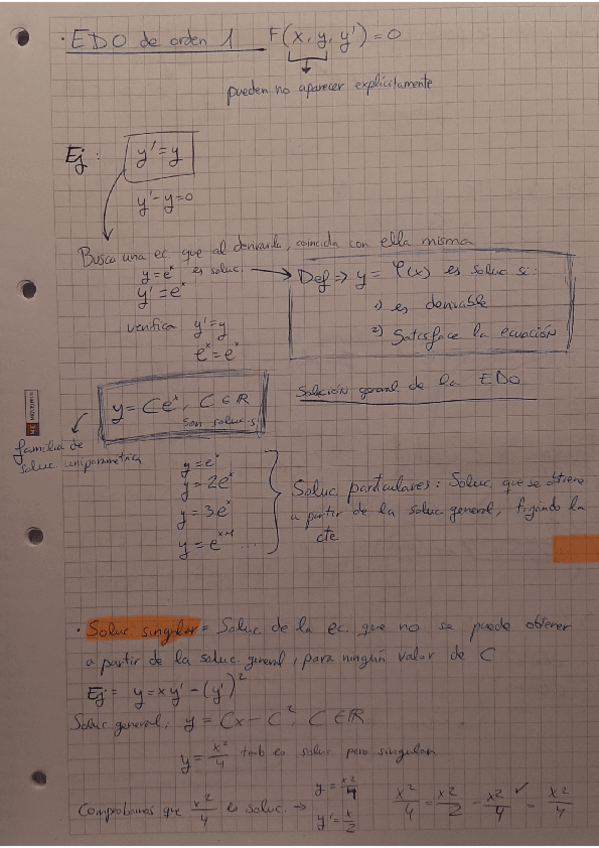 · EDO de orden 1 F(x, y, y') = 0
pueden no aparecer explícitamente
Ej: y' = y
y' - y = 0
Busco una ec. que al derivarla, coincida con ella misma
y = e^x es soluc.
y' = e^x
verifica y' = y
e^x = e^x
Def ⇒ y = φ(x) es soluc si:
1) es derivable
2) Satisface la ecuación
y = Ce^x, C ∈ R
son soluc.s
Solución general de la EDO
familia de
soluc. uniparamétrica
y = e^x
y = 2e^x
y = 3e^x
y = e^{x+1} ...
Soluc. particulares: Soluc. que se obtiene
a partir de la soluc general, fijando la
cte
· Soluc. singular = Soluc. de la ec. que no se puede obtener
a partir de la soluc. general, para ningún valor de C
Ej = y = xy' - (y')^2
Soluc general, y = Cx - C^2, C ∈ R
y = x^2/4 tmb es soluc pero singular.
Comprobamos que x^2/4 es soluc. → y = x^2/4
y' = x/2
x^2/4 = x^2/2 - x^2/4 ✓ = x^2/4